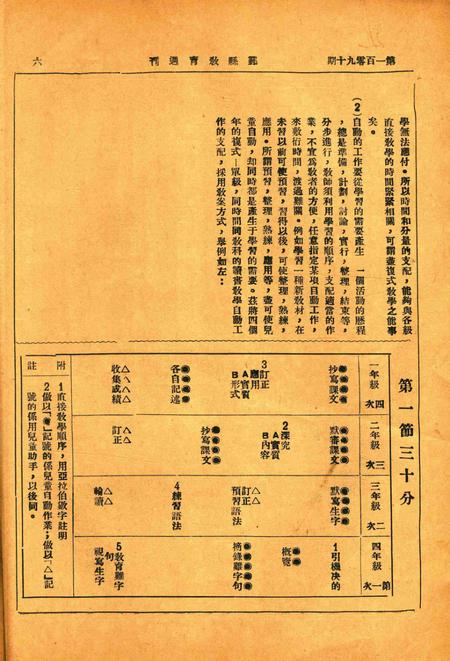 第一百零九十期
鄞縣教育週刊
六
學無法應付。所以時間和分量的支配，能夠與各級
直接教學的時間緊緊相關，可謂盡複式教學之能事
矣。
(2)自動的工作要從學習的需要產生　一個活動的歷程
，總是準備，計劃，討論，實行，整理，結束等，
分步進行，教師須利用學習的順序，支配適當的作
業，不宜爲教者的方便，任意指定某項自動工作，
來敷衍時間，渡過難關。例如學習一種新教材，在
未習以前可使預習，習得以後，可使整理，熟練，
應用。所謂預習，整理，熟練，應用等，盡可使兒
童自動，却同時都是產生于學習的需要。茲將四個
年的複式—單級，同時間同教科的讀書教學自動工
作的支配，採用教案方式，舉例如左：
第一節三十分
一年級
四次
抄寫課文
3訂正
應用
A實質
B形式
各自記述
收集成績
二年級
三次
默審課文
2深究
A實質
B內容
抄寫課文
訂正
三年級
二次
默寫生字
訂正
預習語法
4練習語法
輪讀
四年級
第一次
1引機決的
概覽
摘錄難字句
5教育難字
句
視寫生字
附註
1直接教學順序，用亞拉伯數字註明
2傲以「●」記號的係兒童自動作業；傲以「△」記
號的係用兒童助手，以後同。